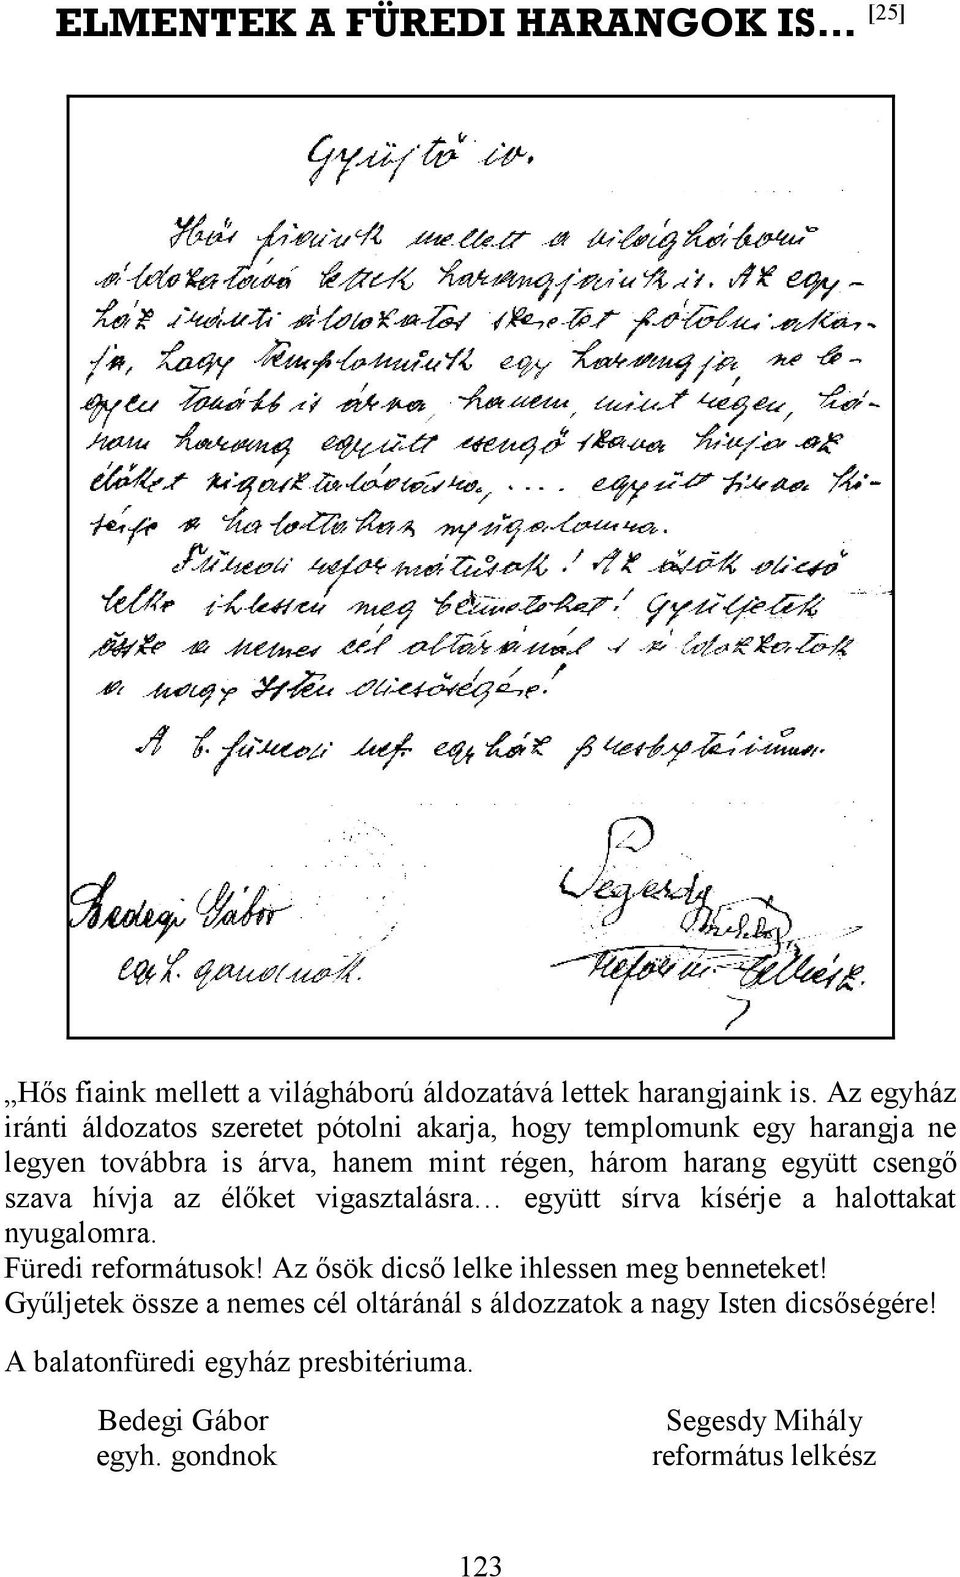 ELMENTEK A FÜREDI HARANGOK IS… [25]
Gyüjtő iv.
Hős fiaink mellett a világháború
áldozatává lettek harangjaink is. Az egy-
ház iránti áldozatos szeretet pótolni akar-
ja, hogy templomunk egy harangja ne le-
gyen tovább is árva, hanem, mint régen, há-
rom harang együtt csengő szava hivja az
élőket vigasztalódásra, .... együtt sirva ki-
sérje a halottakat nyugalomra.
Füredi reformátusok! Az ősök dicső
lelke ihlessen meg benneteket! Gyüljetek
össze a nemes cél oltáránál s áldozzatok
a nagy Isten dicsőségére!
A b. füredi ref. egyház presbytériuma.
Bedegi Gábor
egyh. gondnok.
Segesdy
Mihály
reform. lelkész.
„Hős fiaink mellett a világháború áldozatává lettek harangjaink is. Az egyház
iránti áldozatos szeretet pótolni akarja, hogy templomunk egy harangja ne
legyen továbbra is árva, hanem mint régen, három harang együtt csengő
szava hívja az élőket vigasztalásra… együtt sírva kísérje a halottakat
nyugalomra.
Füredi reformátusok! Az ősök dicső lelke ihlessen meg benneteket!
Gyűljetek össze a nemes cél oltáránál s áldozzatok a nagy Isten dicsőségére!
A balatonfüredi egyház presbitériuma.
Bedegi Gábor
egyh. gondnok
Segesdy Mihály
református lelkész
123